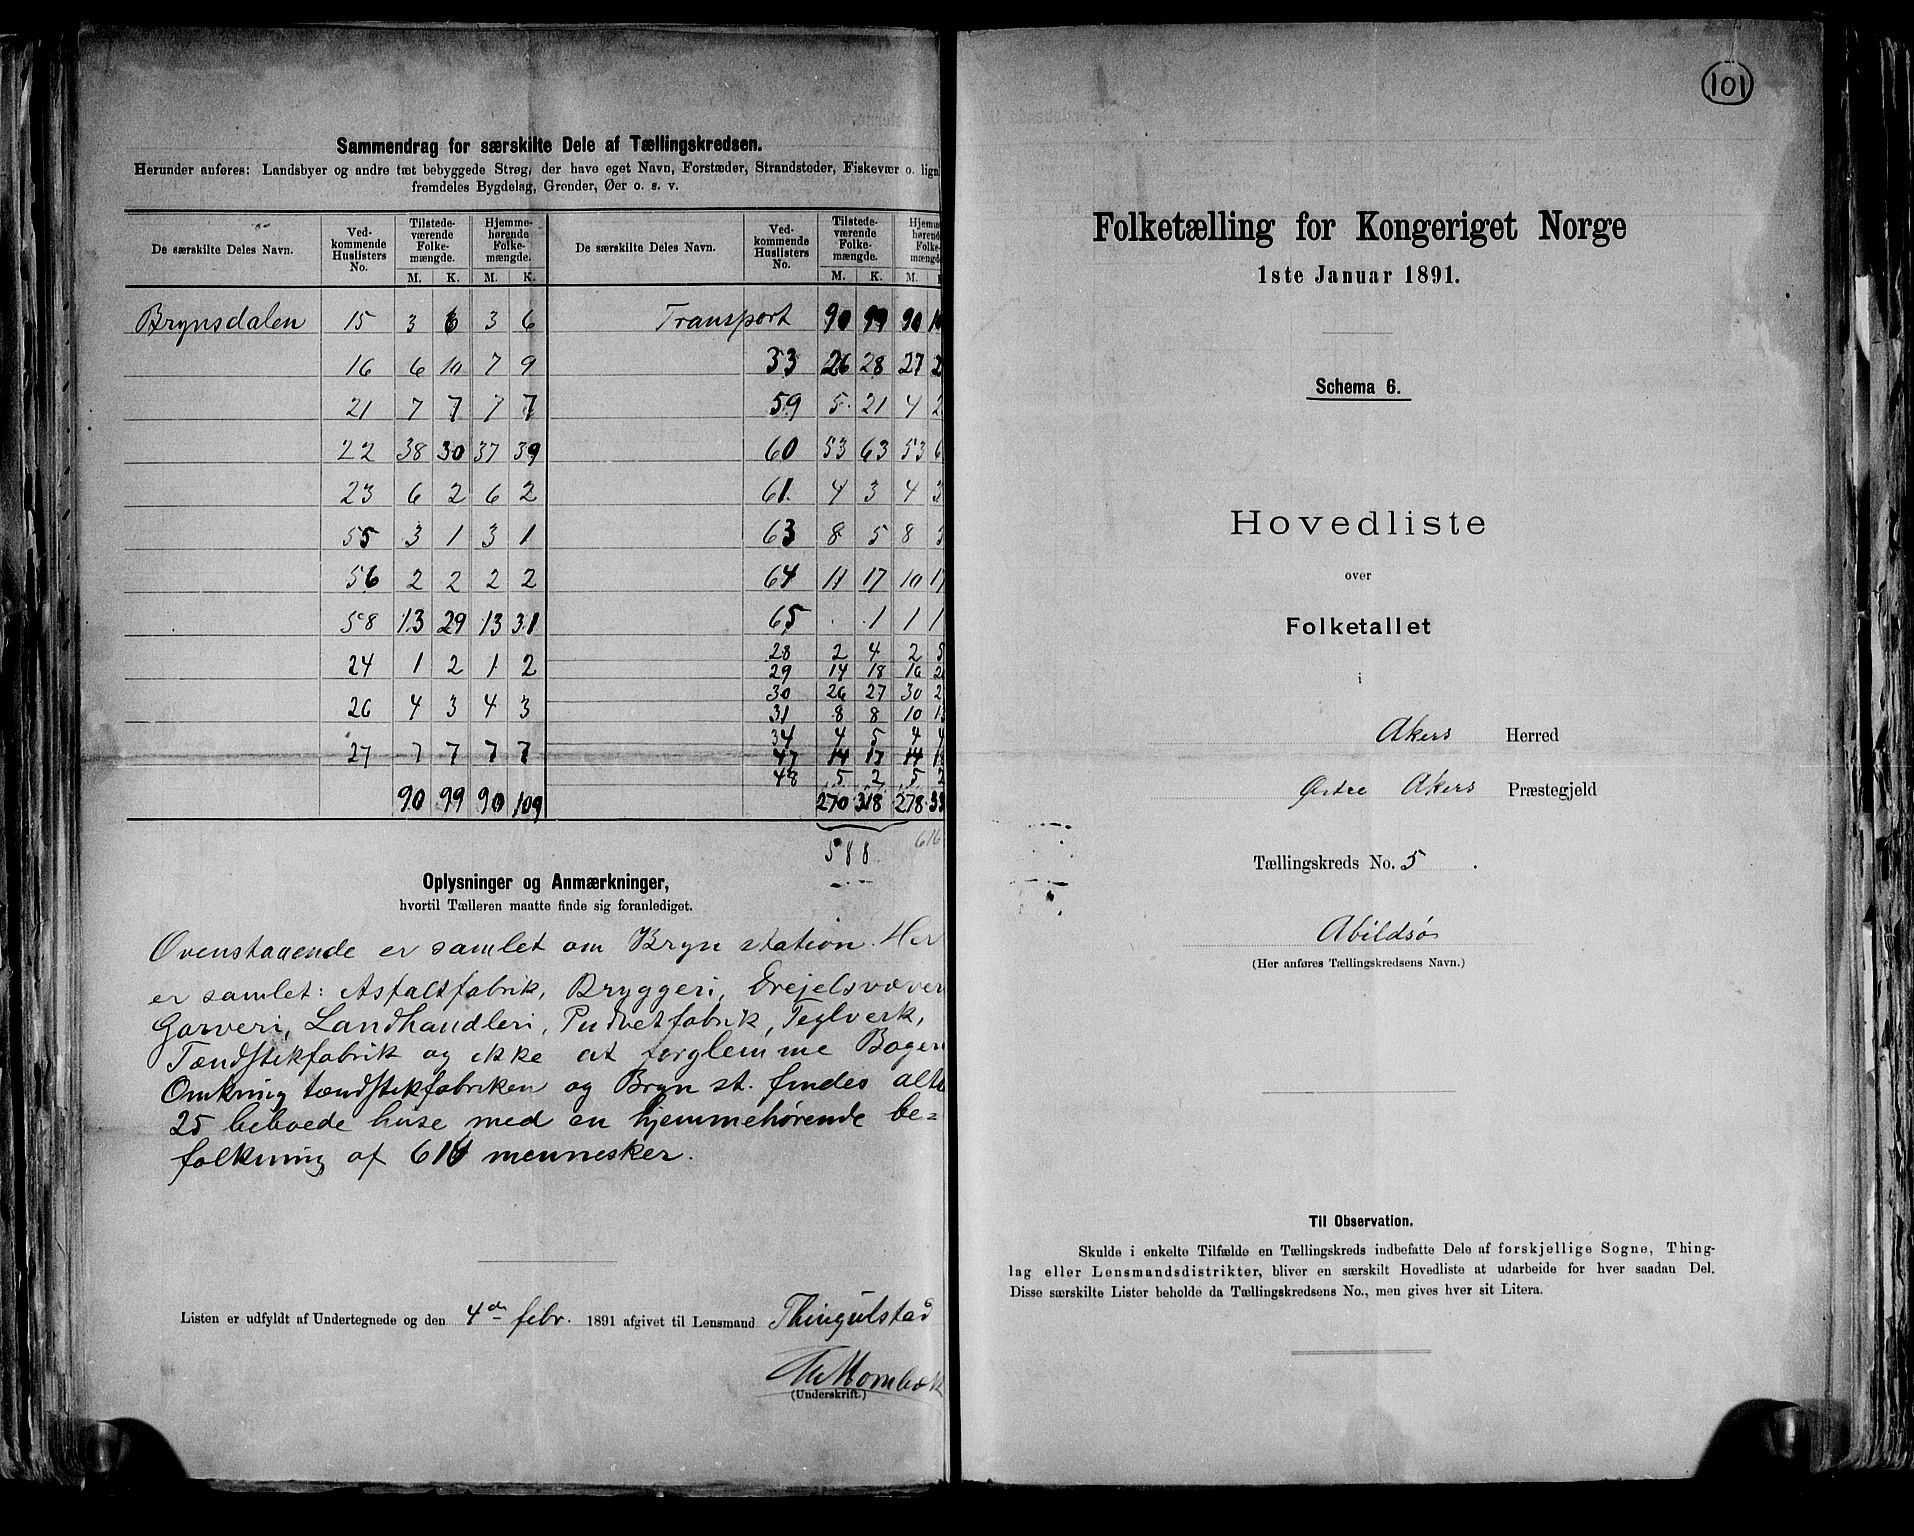 Sammendrag for særskilte Dele af Tællingskredsen.
Herunder anføres: Landsbyer og andre tæt bebyggede Strøg, der have eget Navn, Forstæder, Strandsteder, Fiskevær o. lign
fremdeles Bygdelag, Grender, Øer o. s. v.
De særskilte Deles Navn. Ved-kommende Huslisters No. Tilstede-værende Folke-mængde. Hjemme-hørende Folke-mængde. De særskilte Deles Navn. Ved-kommende Huslisters No. Tilstede-værende Folke-mængde.
M. K. M. K. M. K. M.
Brynsdalen 15 3 6 3 6 Transport 90 99 90
16 6 10 7 9 33 26 28 27
21 7 7 7 7 59 5 21 4
22 38 30 37 39 60 53 63 53
23 6 2 6 2 61 4 3 4
55 3 1 3 1 63 8 5 8
56 2 2 2 2 64 11 17 10
58 13 29 13 31 65 . 1 1 1
28 2 4 2 5
24 1 2 1 2 29 14 18 16
30 26 27 30
26 4 3 4 3 31 8 8 10
34 4 5 4
27 7 7 7 7 47 14 17 14
48 5 2 5 2
90 99 90 109 270 318 278
588 616
Oplysninger og Anmærkninger,
hvortil Tælleren maatte finde sig foranlediget.
Ovenstaaende er samlet om Bryn station. Her
er samlet: Asfaltfabrik, Bryggeri, Drejelsvæver
Garveri, Landhandleri, Pudretfabrik, Teglverk,
Tændstikfabrik og ikke at forglemme Bageri
Omkring tændstikfabriken og Bryn st. findes
25 beboede huse med en hjemmehørende be=
folkning af 616 mennesker.
Listen er udfyldt af Undertegnede og den 4de febr. 1891 afgivet til Lensmand Thingulstad
(Underskrift.)
101
Folketælling for Kongeriget Norge
1ste Januar 1891.
Schema 6.
Hovedliste
over
Folketallet
i
Akers Herred
Østre Akers Præstegjeld
Tællingskreds No. 5.
Abildsø
(Her anføres Tællingskredsens Navn.)
Til Observation.
Skulde i enkelte Tilfælde en Tællingskreds indbefatte Dele af forskjellige Sogne, Thing-
lag eller Lensmandsdistrikter, bliver en særskilt Hovedliste at udarbeide for hver saadan Del.
Disse særskilte Lister beholde da Tællingskredsens No., men gives hver sit Litera.